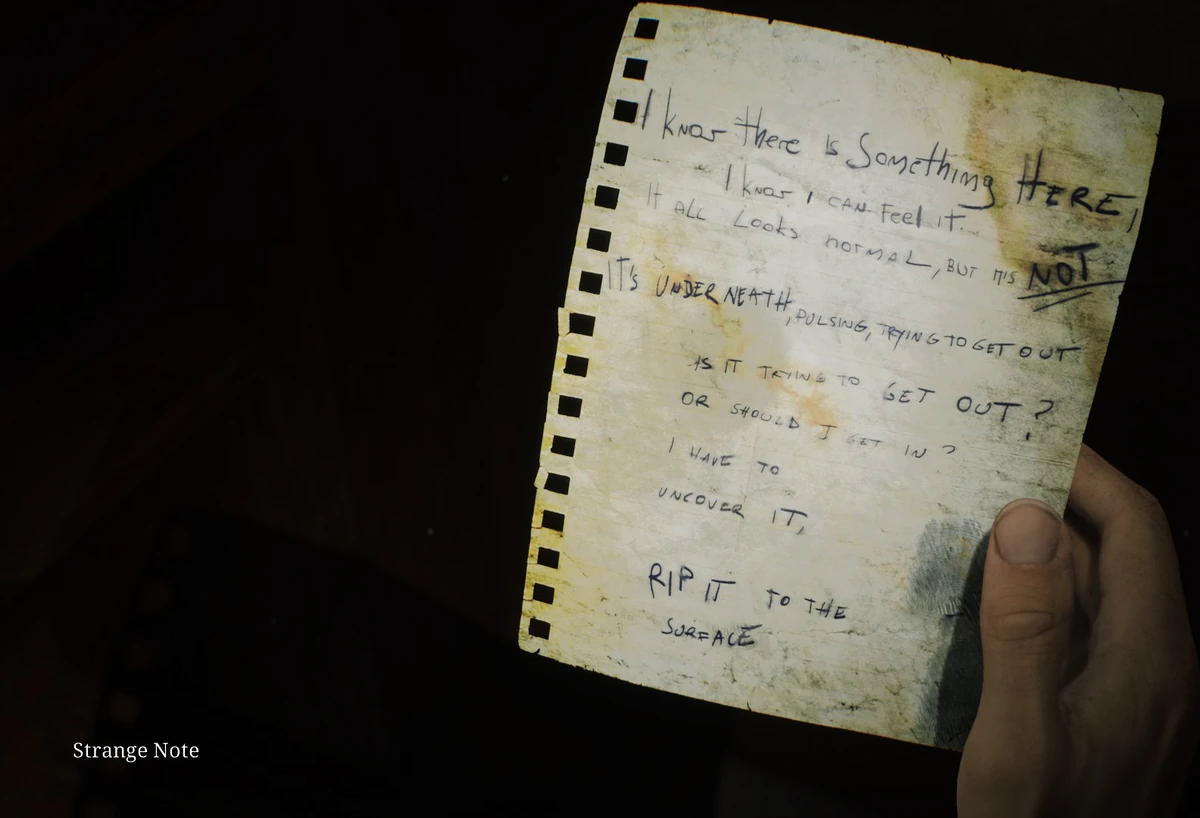 I know there is Something HERE,
I know I CAN Feel IT...
It ALL Looks normaL, BUT IT'S NOT
IT'S UNDERNEATH, PULSING, TRYING TO GET OUT
IS IT TRYING TO GET OUT?
OR SHOULD I GET IN?
I HAVE TO
UNCOVER IT,
RIP IT TO THE
SURFACE
Strange Note